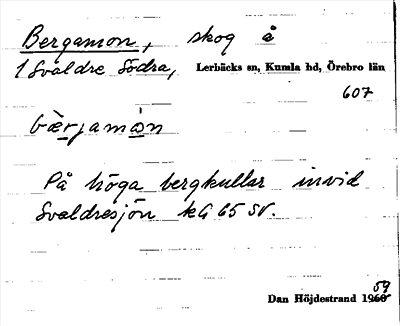 Bergamon, skog å
1 Svaldre Södra, Lerbäcks sn, Kumla hd, Örebro län
607
bærjamòn
På höga bergkullar invid
Svaldresjön kG 65 SV.
59
Dan Höjdestrand 1960